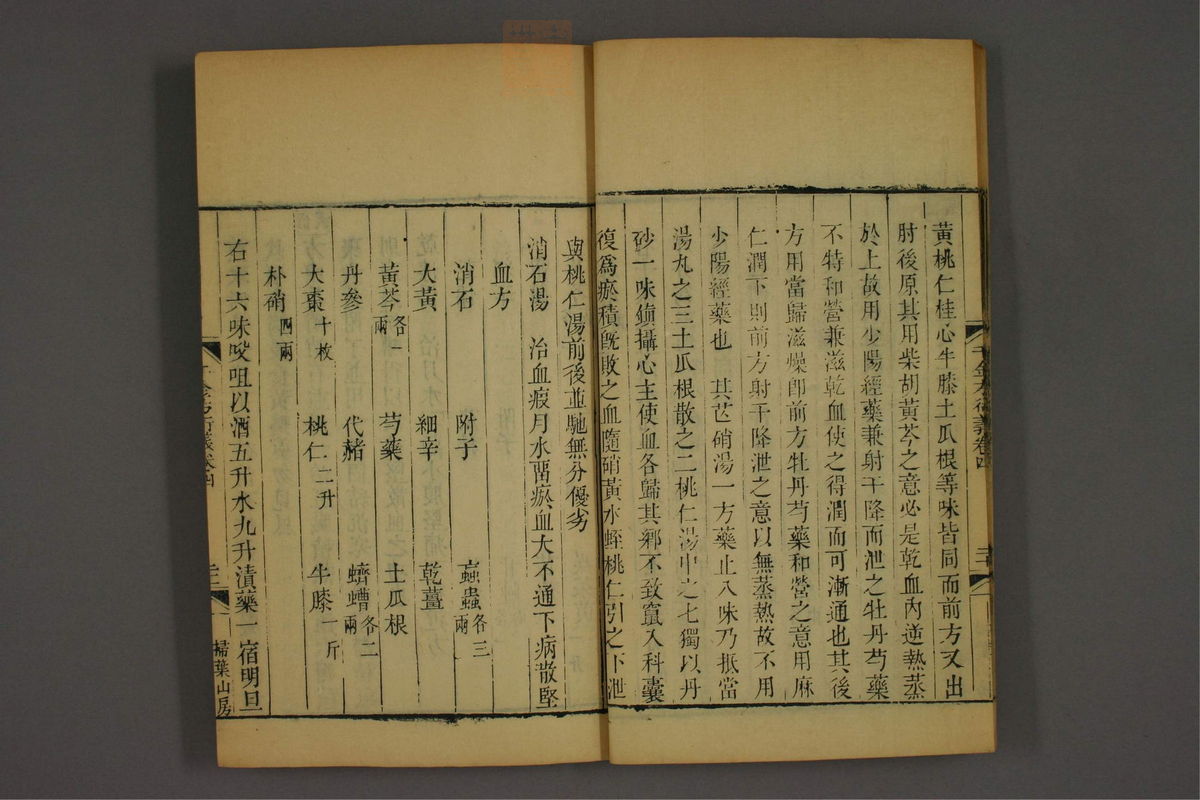 黃桃仁桂心牛膝土瓜根等味皆同而前方又出
肘後原其用柴胡黃芩之意必是乾血內逆熱蒸
於上故用少陽經藥兼射干降而泄之牡丹芍藥
不特和營兼滋乾血使之得潤而可漸通也其後
方用當歸滋燥卽前方牡丹芍藥和營之意用麻
仁潤下則前方射干降泄之意以無蒸熱故不用
少陽經藥也　其芒硝湯一方藥止八味乃抵當
湯丸之三土瓜根散之二桃仁湯中之七獨以丹
砂一味鎮攝心主使血各歸其鄉不致竄入科囊
復爲瘀積旣敗之血隨硝黃水蛭桃仁引之下泄
千金方衍義卷四
與桃仁湯前後並馳無分優劣
消石湯　治血瘕月水畱瘀血大不通下病散堅
血方
消石　附子　䗪蟲各三兩
大黃　細辛　乾薑
黃芩各一兩　芍藥　土瓜根
丹參　代赭　蠐螬各二兩
大棗十枚　桃仁二升　牛膝一斤
朴硝四兩
右十六味㕮咀以酒五升水九升漬藥一宿明旦
千金方衍義卷四
掃葉山房